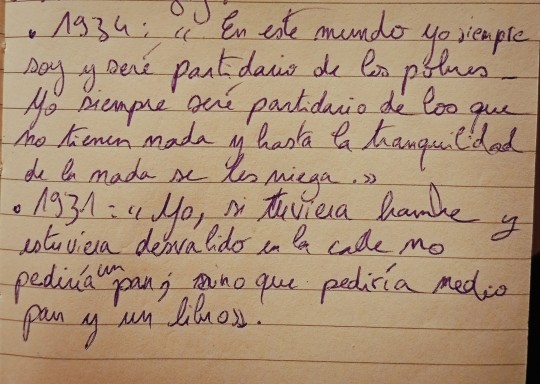 • 1934 : « En este mundo yo siempre
soy y seré partidario de los pobres_
Yo siempre seré partidario de los que
no tienen nada y hasta la tranquilidad
de la nada se les niega.»
• 1931 : « Yo, si tuviera hambre y
estuviera desvalido en la calle no
pediría un pan; sino que pediría medio
pan y un libro».